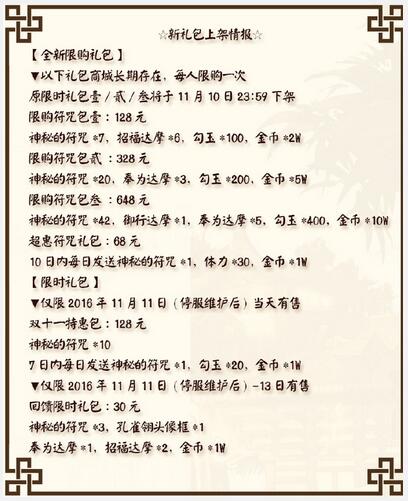 ☆新礼包上架情报☆
【全新限购礼包】
▼以下礼包商城长期存在，每人限购一次
原限时礼包壹／贰／叁将于11月10日23:59下架
限购符咒包壹：128元
神秘的符咒*7，招福达摩*6，勾玉*100，金币*2W
限购符咒包贰：328元
神秘的符咒*20，奉为达摩*3，勾玉*200，金币*5W
限购符咒包叁：648元
神秘的符咒*42，御行达摩*1，奉为达摩*5，勾玉*400，金币*10W
超惠符咒礼包：68元
10日内每日发送神秘的符咒*1，体力*30，金币*1W
【限时礼包】
▼仅限2016年11月11日（停服维护后）当天有售
双十一特惠包：128元
神秘的符咒*10
7日内每日发送神秘的符咒*1，勾玉*20，金币*1W
▼仅限2016年11月11日（停服维护后）-13日有售
回馈限时礼包：30元
神秘的符咒*3，孔雀翎头像框*1
奉为达摩*1，招福达摩*2，金币*1W